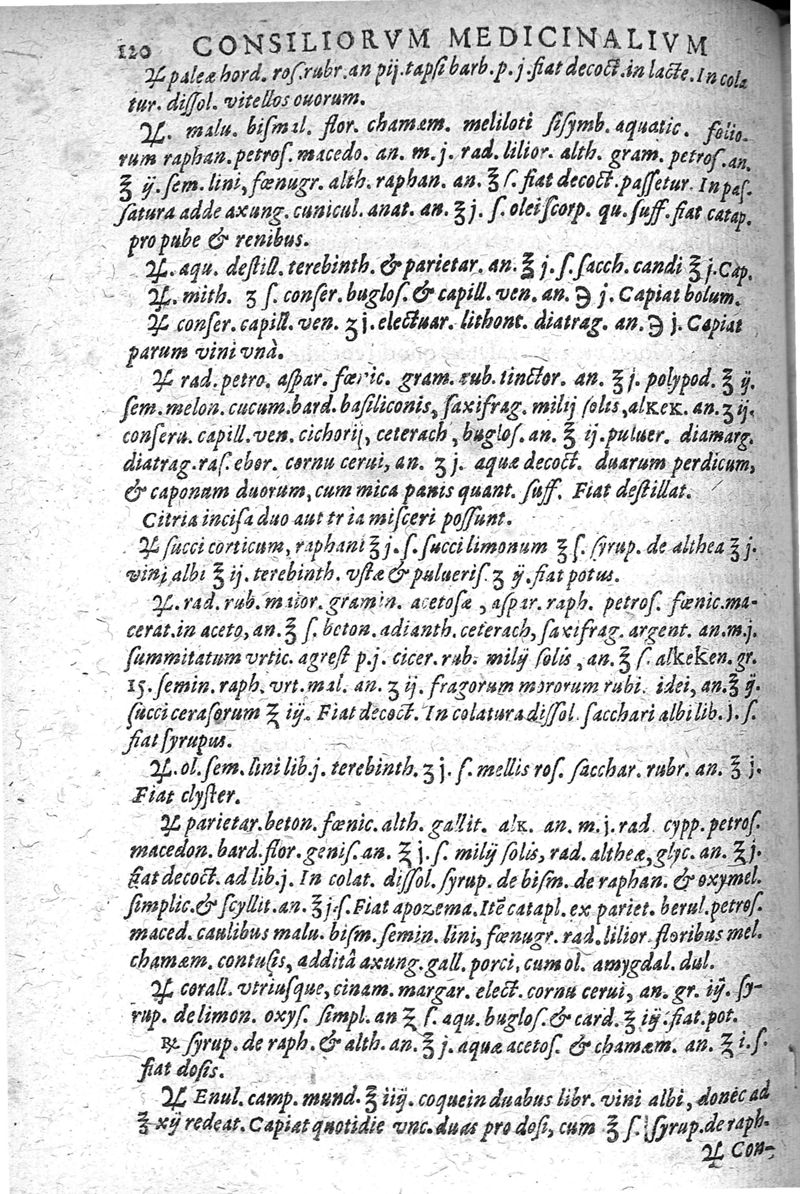 120 CONSILIORVM MEDICINALIVM
♃ paleæ hord. roſ. rubr. an pij. tapſi barb. p. j. fiat decoct. in lacte. In cola
tur. diſſol. vitellos ouorum.
♃. malu. biſmal. flor. chamæm. meliloti ſiſymb. aquatic. folio-
rum raphan. petroſ. macedo. an. m. j. rad. lilior. alth. gram. petroſ. an.
℥ ij. ſem. lini, fœnugr. alth. raphan. an. ℥ ſ. fiat decoct. paſſetur. In paſ-
ſatura adde axung. cunicul. anat. an. ℥ j. ſ. olei ſcorp. qu. ſuff. fiat catap.
pro pube & renibus.
♃. aqu. deſtill. terebinth. & parietar. an. ℥ j. ſ. ſacch. candi ℥ j. Cap.
♃. mith. ʒ ſ. conſer. bugloſ. & capill. ven. an. ℈ j. Capiat bolum.
♃ conſer. capill. ven. ʒ j. electuar. lithont. diatrag. an. ℈ j. Capiat
parum vini vnà.
♃ rad. petro. aſpar. fœnic. gram. rub. tinctor. an. ℥ j. polypod. ℥ ij.
ſem. melon. cucum. bard. baſiliconis, ſaxifrag. milij ſolis, alKEK. an. ʒ ij.
conſeru. capill. ven. cichorij, ceterach, bugloſ. an. ℥ ij. puluer. diamarg.
diatrag. raſ. ebor. cornu cerui, an. ʒ j. aquæ decoct. duarum perdicum,
& caponum duorum, cum mica panis quant. ſuff. Fiat deſtillat.
Citria inciſa duo aut tria miſceri poſſunt.
♃ ſucci corticum, raphani ℥ j. ſ. ſucci limonum ℥ ſ. ſyrup. de althea ℥ j.
vini albi ℥ ij. terebinth. vſtæ & pulueris. ʒ ij. fiat potus.
♃. rad. rub. maior. gramin. acetoſæ, aſpar. raph. petroſ. fœnic. ma-
cerat. in aceto, an. ℥ ſ. beton. adianth. ceterach, ſaxifrag. argent. an. m. j.
ſummitatum vrtic. agreſt p. j. cicer. rub. milij ſolis, an. ℥ ſ. alkeken. gr.
15. ſemin. raph. vrt. mal. an. ʒ ij. fragorum mororum rubi idei, an. ℥ ij.
ſucci ceraſorum ℥ iij. Fiat decoct. In colatura diſſol. ſacchari albi lib. j. ſ.
fiat ſyrupus.
♃. ol. ſem. lini lib. j. terebinth. ʒ j. ſ. mellis roſ. ſacchar. rubr. an. ℥ j.
Fiat clyſter.
♃ parietar. beton. fœnic. alth. gallit. alK. an. m. j. rad. cypp. petroſ.
macedon. bard. flor. geniſ. an. ℥ j. ſ. milij ſolis, rad. altheæ, glyc. an. ℥ j.
fiat decoct. ad lib. j. In colat. diſſol. ſyrup. de biſm. de raphan. & oxymel.
ſimplic. & ſcyllit. an. ℥ j. ſ. Fiat apozema. Itē catapl. ex pariet. berul. petroſ.
maced. caulibus malu. biſm. ſemin. lini, fœnugr. rad. lilior. floribus mel.
chamæm. contuſis, additâ axung. gall. porci, cum ol. amygdal. dul.
♃ corall. vtriuſque, cinam. margar. elect. cornu cerui, an. gr. iij. ſy-
rup. de limon. oxyſ. ſimpl. an ℥ ſ. aqu. bugloſ. & card. ℥ iij. fiat pot.
℞ ſyrup. de raph. & alth. an. ℥ j. aquæ acetoſ. & chamæm. an. ℥ i. ſ.
fiat doſis.
♃ Enul. camp. mund. ℥ iiij. coque in duabus libr. vini albi, donec ad
℥ xij redeat. Capiat quotidie vnc. duas pro doſi, cum ℥ ſ. ſyrup. de raph.
♃ Con-